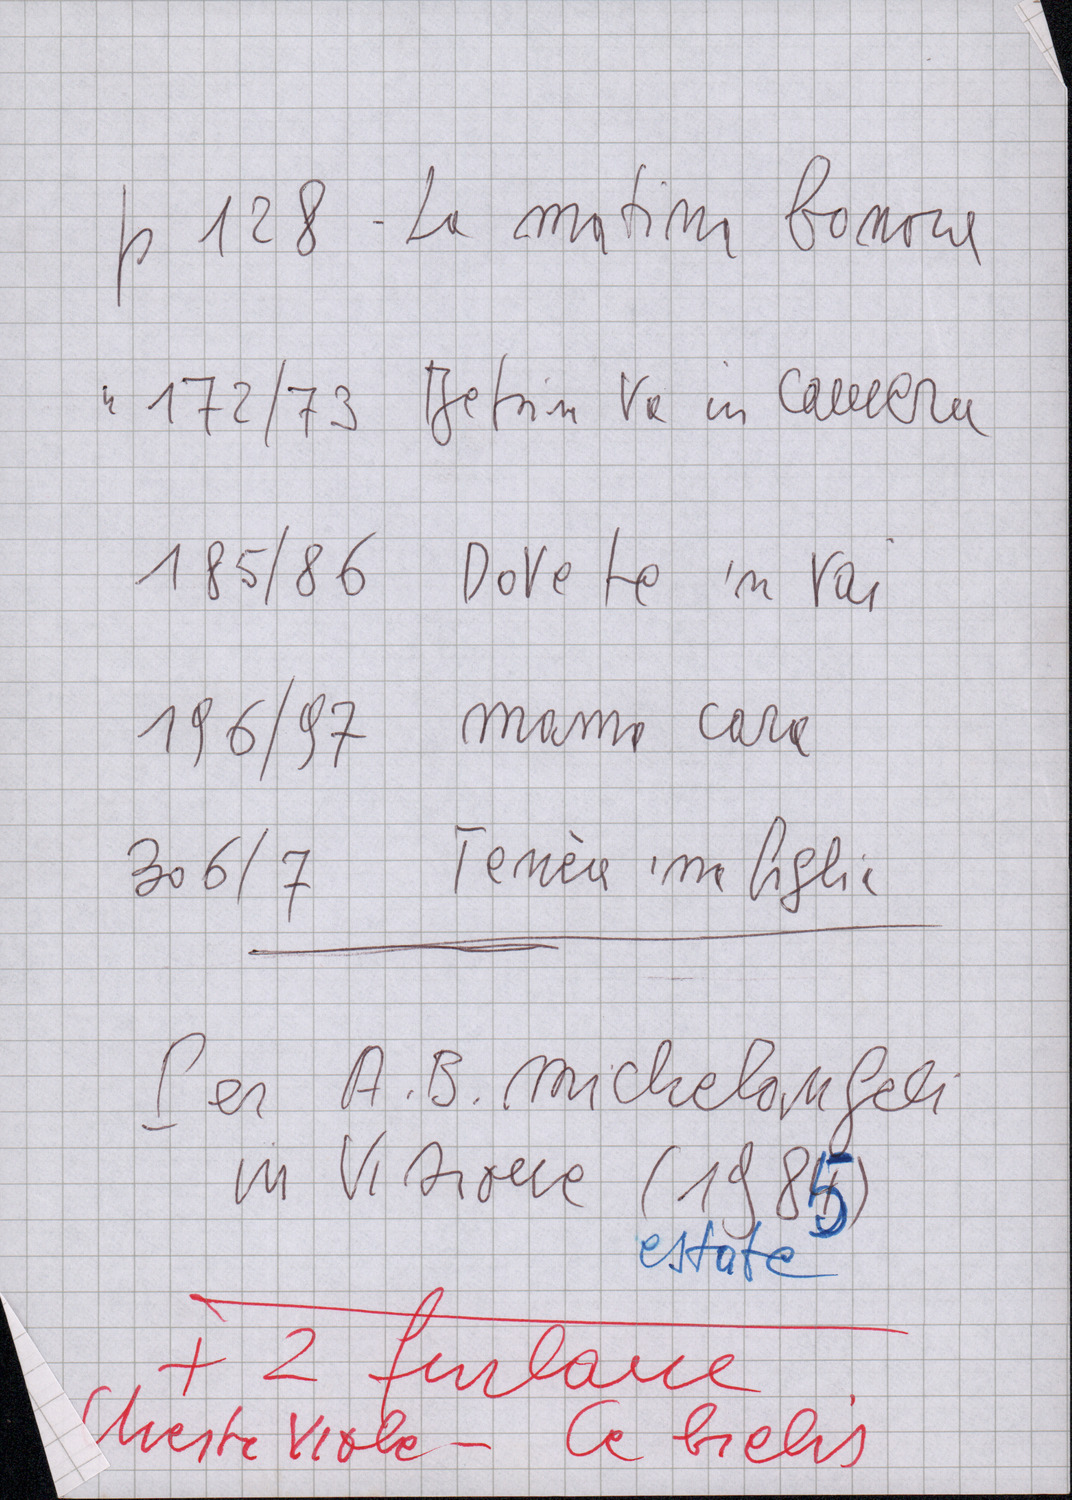 p 128 - La matina bonora
" 172/73 Betrin va in camera
185/86 Dove te 'n vai
196/97 mama cara
306/7 Tenèa 'na figlia
Per A.B. Michelangeli
in Visione (1985)
estate
+ 2 furlane
Cheste viole - Ce bielis